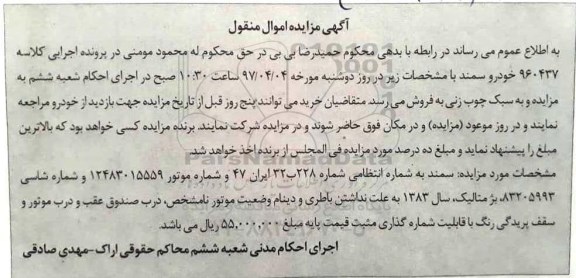 آگهی مزایده اموال منقول
به اطلاع عموم می رساند در رابطه با بدهی محکوم حمیدرضا بی بی در حق محکوم له محمود مومنی در پرونده اجرایی کلاسه
۹۶۰۴۳۷ خودرو سمند با مشخصات زیر در روز دوشنبه مورخه ۹۷/۰۴/۰۴ ساعت ۱۰:۳۰ صبح در اجرای احکام شعبه ششم به
مزایده و به سبک چوب زنی به فروش می رسد. متقاضیان خرید می توانند پنج روز قبل از تاریخ مزایده جهت بازدید از خودرو مراجعه
نمایند و در روز موعود (مزایده) و در مکان فوق حاضر شوند و در مزایده شرکت نمایند. برنده مزایده کسی خواهد بود که بالاترین
مبلغ را پیشنهاد نماید و مبلغ ده درصد مورد مزایده فی المجلس از برنده اخذ خواهد شد.
مشخصات مورد مزایده: سمند به شماره انتظامی شماره ۲۲۸ب۳۲ ایران ۴۷ و شماره موتور ۱۲۴۸۳۰۱۵۵۵۹ و شماره شاسی
۸۳۲۰۵۹۹۳، بژ متالیک، سال ۱۳۸۳ به علت نداشتن باطری و دینام وضعیت موتور نامشخص، درب صندوق عقب و درب موتور و
سقف پریدگی رنگ با قابلیت شماره گذاری مثبت قیمت پایه مبلغ ۵۵.۰۰۰.۰۰۰ ریال می باشد.
اجرای احکام مدنی شعبه ششم محاکم حقوقی اراک-مهدی صادقی
ParsNamadData